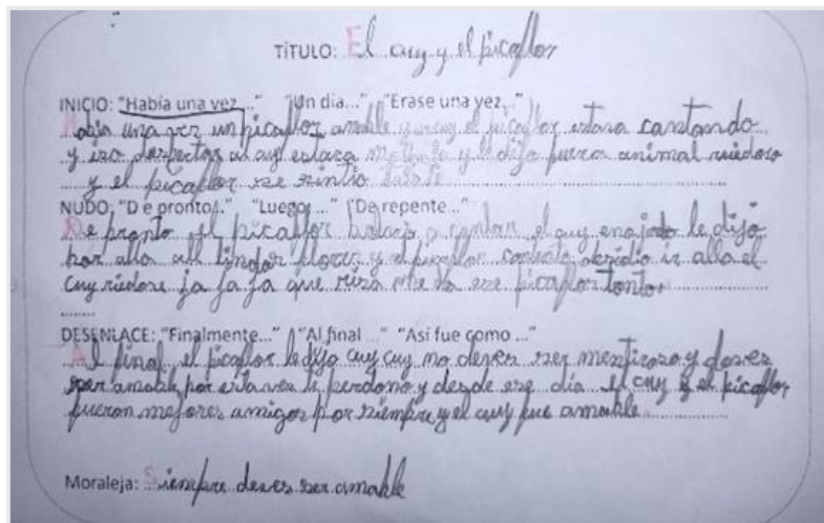 TÍTULO: El cuy y el picaflor
INICIO: "Había una vez..." "Un día..." "Erase una vez..."
Había una vez un picaflor amable y un cuy el picaflor estava cantando
y izo despertar al cuy estava molesto y le dijo fuera animal ruidoso
y el picaflor se sintio triste
NUDO: "De pronto..." "Luego ..." "De repente..."
De pronto el picaflor bolvio a cantar el cuy enojado le dijo
por alla all lindar flores y el picaflor contento decidio ir alla el
cuy riedose ja ja ja que risa me da ese picaflor tonto.
DESENLACE: "Finalmente..." "Al final ..." "Así fue como ..."
Al final el picaflor le dijo cuy cuy no deves ser mentiroso y deves
ser amable por esta ves te perdono y desde ese día el cuy y el picaflor
fueron mejores amigos por siempre y el cuy fue amable
Moraleja: Siempre deves ser amable